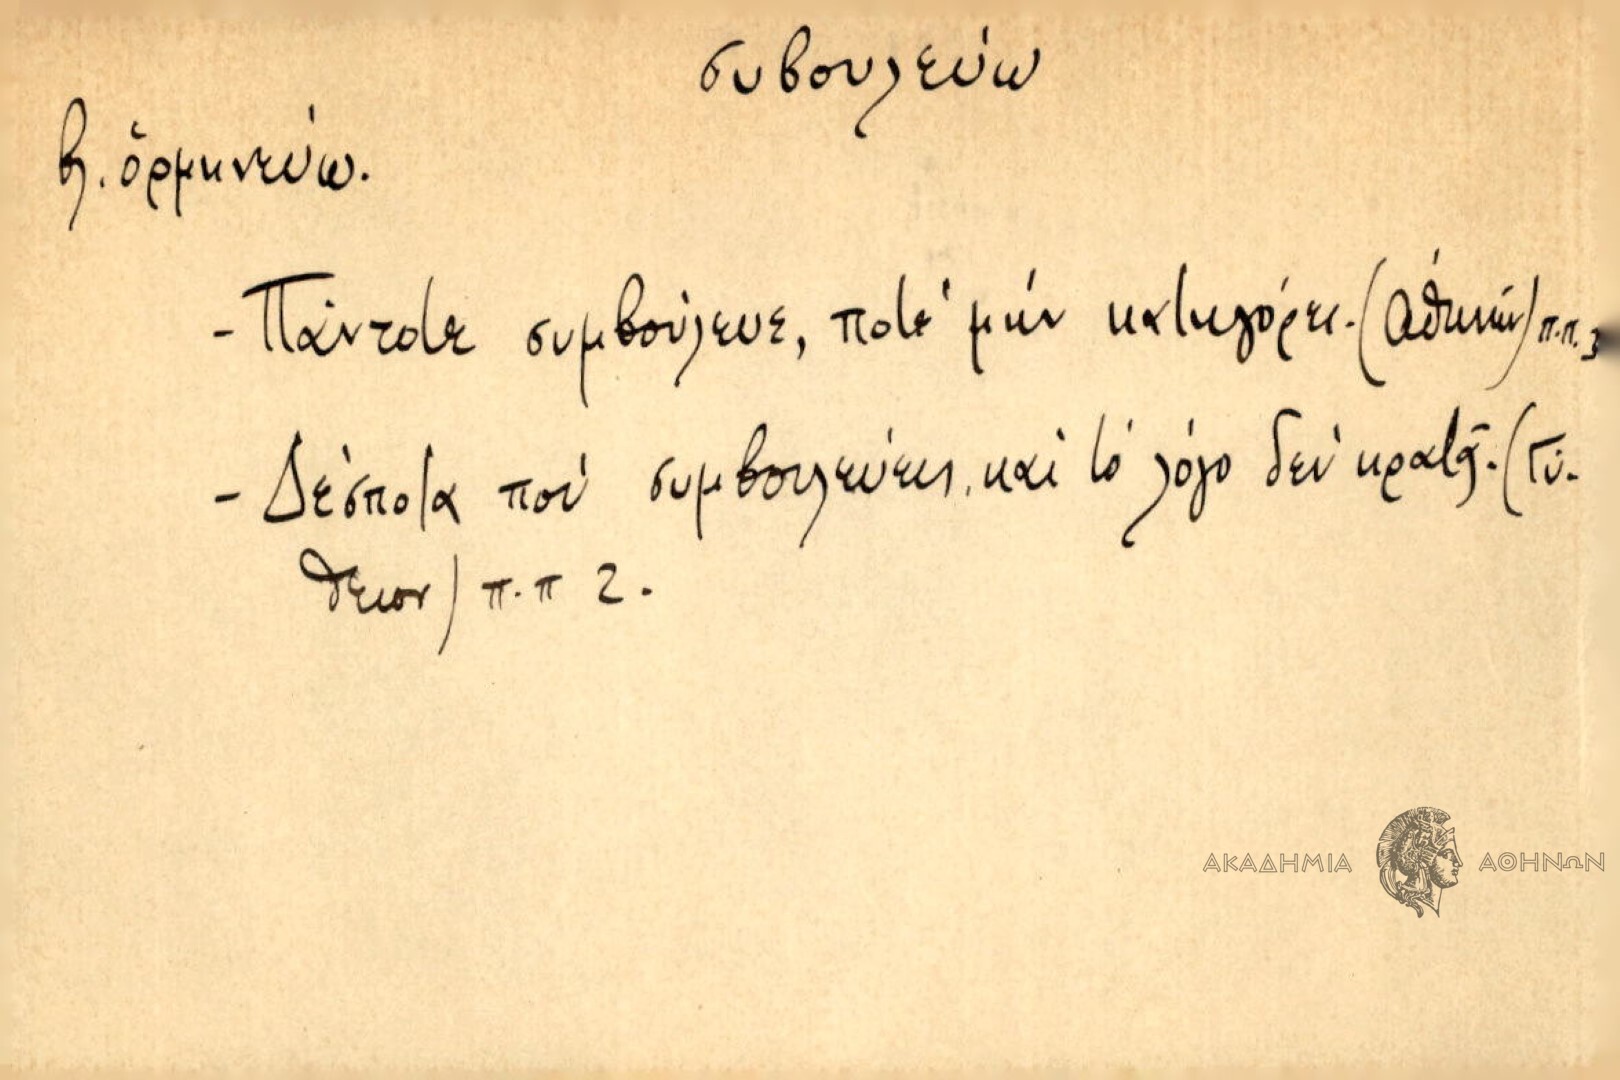 συβουλεύω
βλ. ὁρμηνεύω.
- Πάντοτε συμβούλευε, ποτέ μήν κατηγόρει. (Ἀθηνῶν) π.π. 3
- Δέσποτα πού συμβουλεύεις, καί τό λόγο δέν κρατᾷς. (Γύ-
θειον) π.π 2.
ΑΚΑΔΗΜΙΑ ΑΘΗΝΩΝ